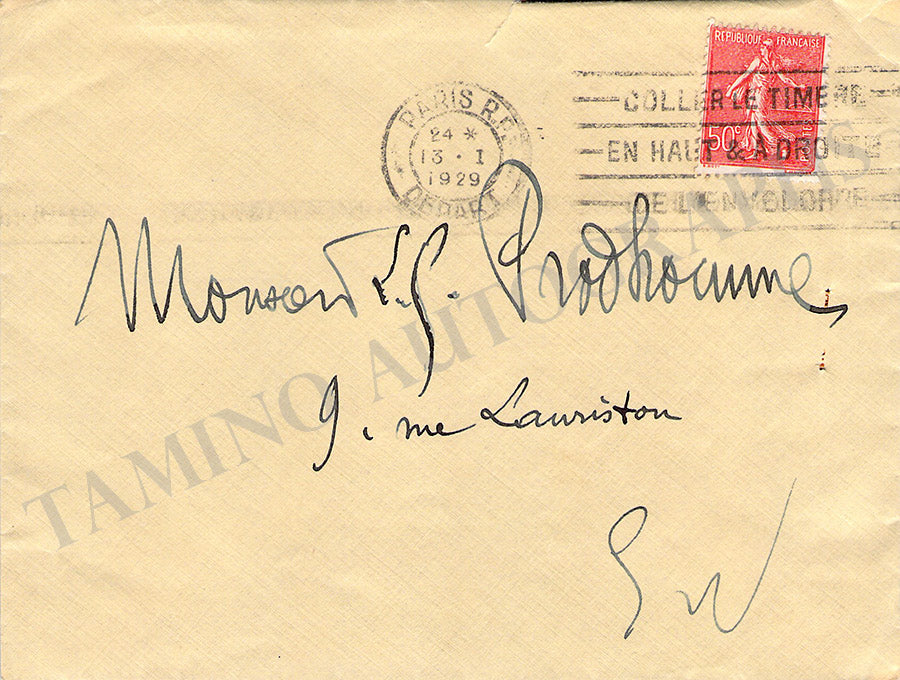 REPUBLIQUE FRANÇAISE
50c POSTES
PARIS R.P.
24 *
13 · I
1929
DEPART
COLLER LE TIMBRE
EN HAUT & À DROITE
DE L'ENVELOPPE
Monsieur L.G. Prodhomme
9, rue Lauriston
EV
TAMINO AUTOGRAPHS